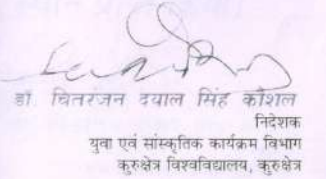 डॉ. चितरंजन दयाल सिंह कौशल
निदेशक
युवा एवं सांस्कृतिक कार्यक्रम विभाग
कुरुक्षेत्र विश्वविद्यालय, कुरुक्षेत्र